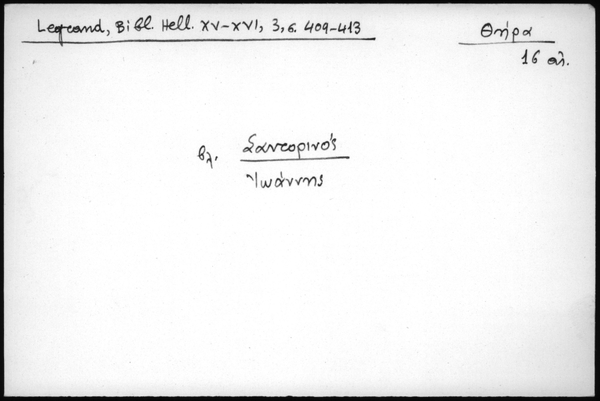 Legrand, Bibl. Hell. XV-XVI, 3, σ. 409-413
Θήρα
16 αι.
βλ. Σαντορινός
Ἰωάννης